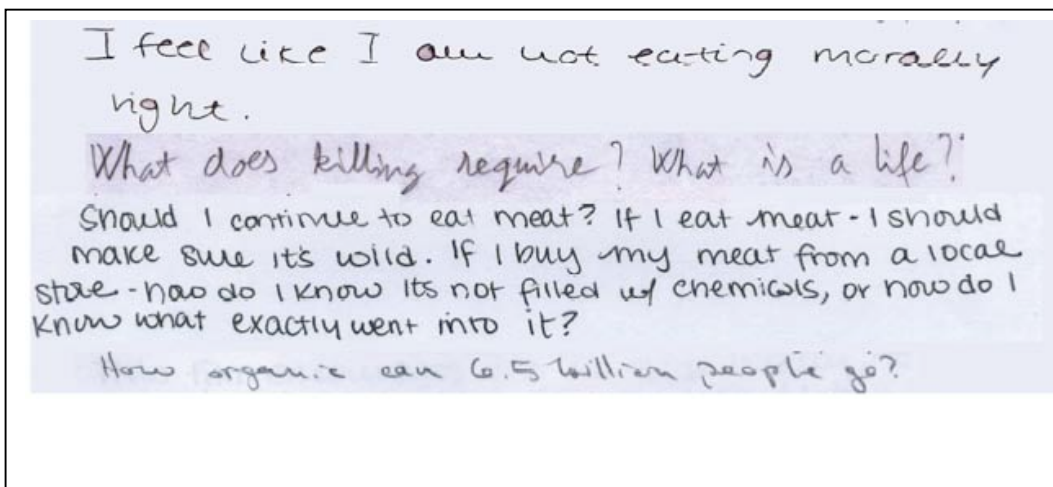 I feel like I am not eating morally
right.
What does killing require? What is a life?
Should I continue to eat meat? If I eat meat - I should
make sure it's wild. If I buy my meat from a local
store - how do I know its not filled w/ chemicals, or how do I
know what exactly went into it?
How organic can 6.5 billion people go?